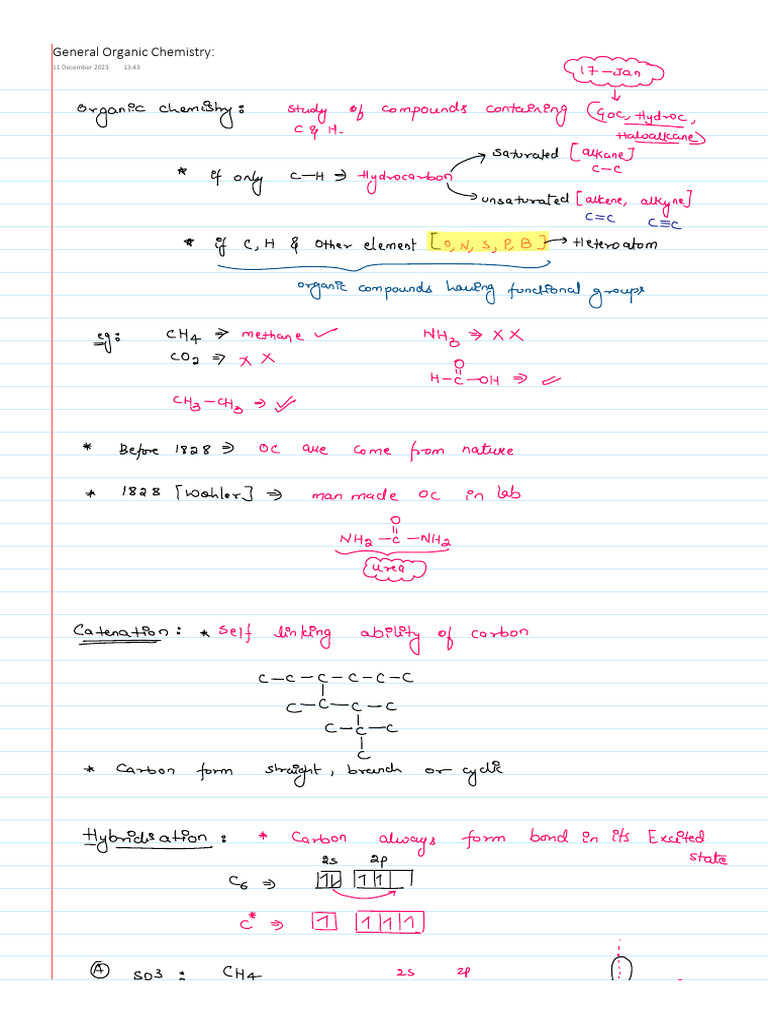 General Organic Chemistry:
11 December 2023 13:43
17-Jan
Organic chemistry: study of compounds containing (GOC, Hydroc,
C & H. Haloalkane)
* if only C-H ⇒ Hydrocarbon
saturated [alkane]
C-C
unsaturated [alkene, alkyne]
C=C C≡C
* if C, H & other element [O, N, S, P, B] → Heteroatom
organic compounds having functional groups
eg: CH4 ⇒ methane ✓ NH3 ⇒ X X
CO2 ⇒ X X
O
H-C-OH ⇒ ✓
CH3-CH3 ⇒ ✓
* Before 1828 ⇒ OC are come from nature
* 1828 [Wohler] ⇒ man made OC in lab
O
NH2-C-NH2
Urea
Catenation: * Self linking ability of carbon
C-C-C-C-C-C
C-C-C-C
C-C-C
C
* Carbon form straight, branch or cyclic
Hybridisation: * Carbon always form bond in its Excited
state
2s 2p
C6 ⇒ 1 1 1 1
C* ⇒ 1 1 1 1
(A) SP3: CH4 2s 2p